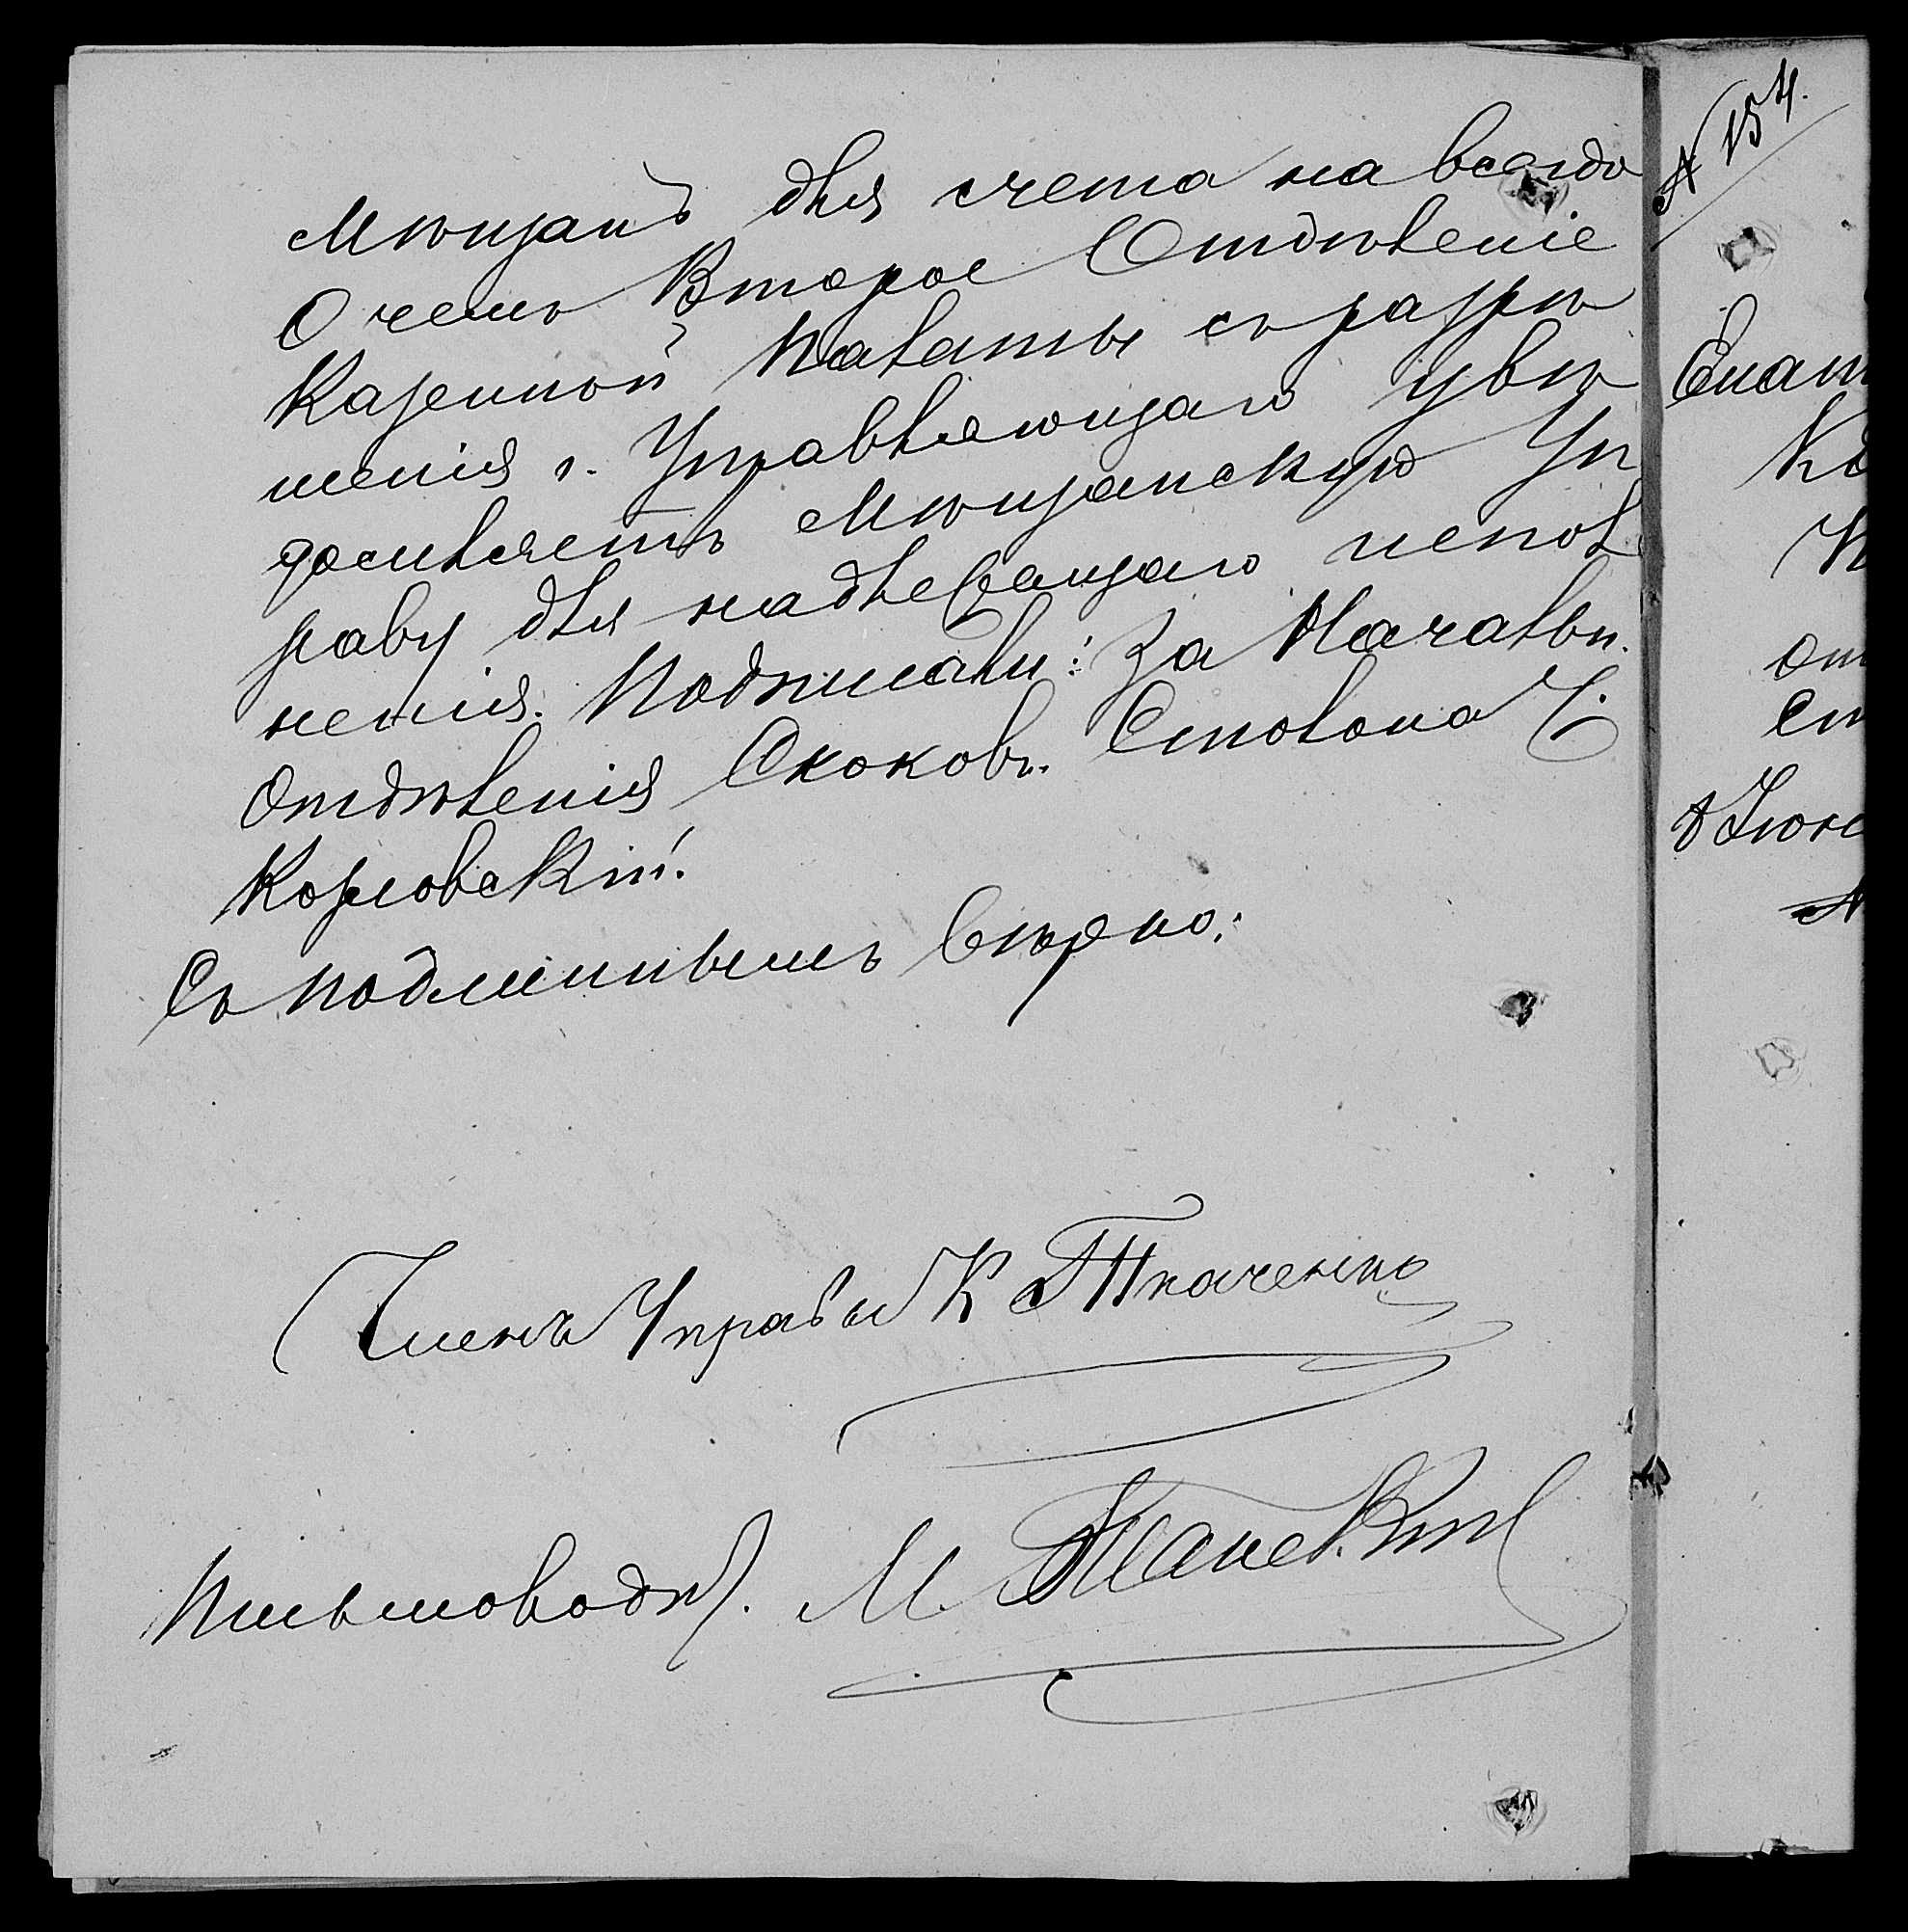 Мѣщанъ для счета на всегда
О чемъ Второе Отдѣленіе
Казенной Палаты съ разрѣ
шенія г. Управляющаго увѣ
домляетъ Мѣщанскую Уп
раву для надлежащаго испол
ненія. Подписали: За Начальн.
Отдѣленія Скоковъ. Столона Ч.
Козловскій.
Съ подлиннымъ вѣрно:
Членъ Управы К Ткаченко
Письмовод. М.
№ 154.
Екат